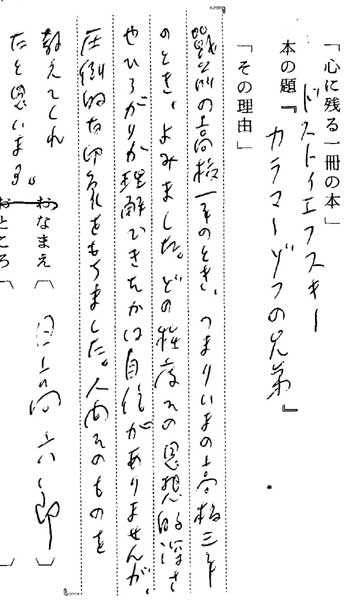 「心に残る一冊の本」
ドストイエフスキー
本の題『カラマーゾフの兄弟』
「その理由」
戦前の高校一年のとき、つまりいまの高校三年
のとき、よみました。どの程度その思想的深さ
やひろがりが理解できたかは自信がありませんが、
圧倒的な印象をもちました。人間そのものを
教えてくれ
たと思います。
おなまえ〔 高 六郎〕
おところ〔 〕